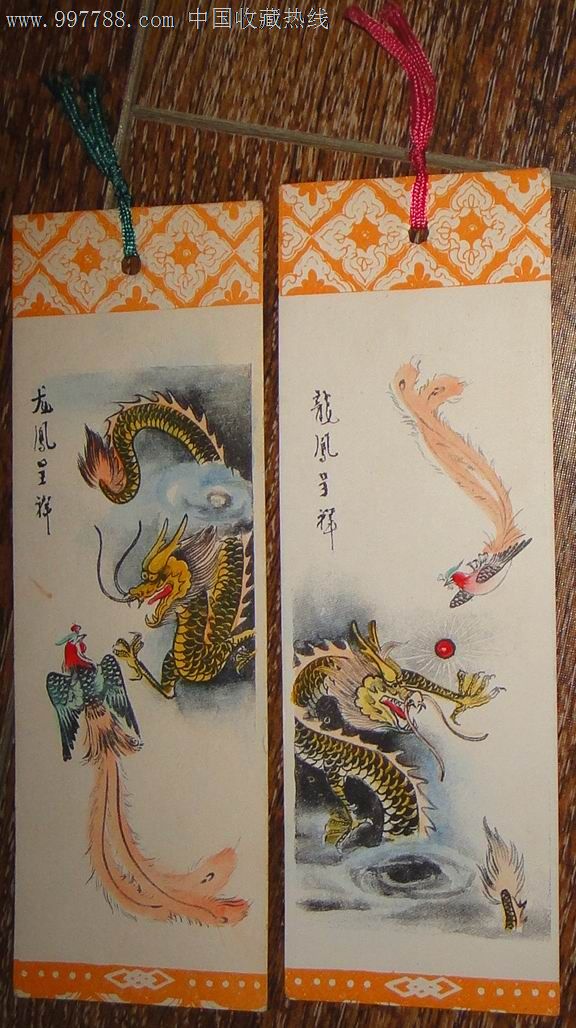 www.997788.com 中国收藏热线
龙凤呈祥
龍鳳呈祥